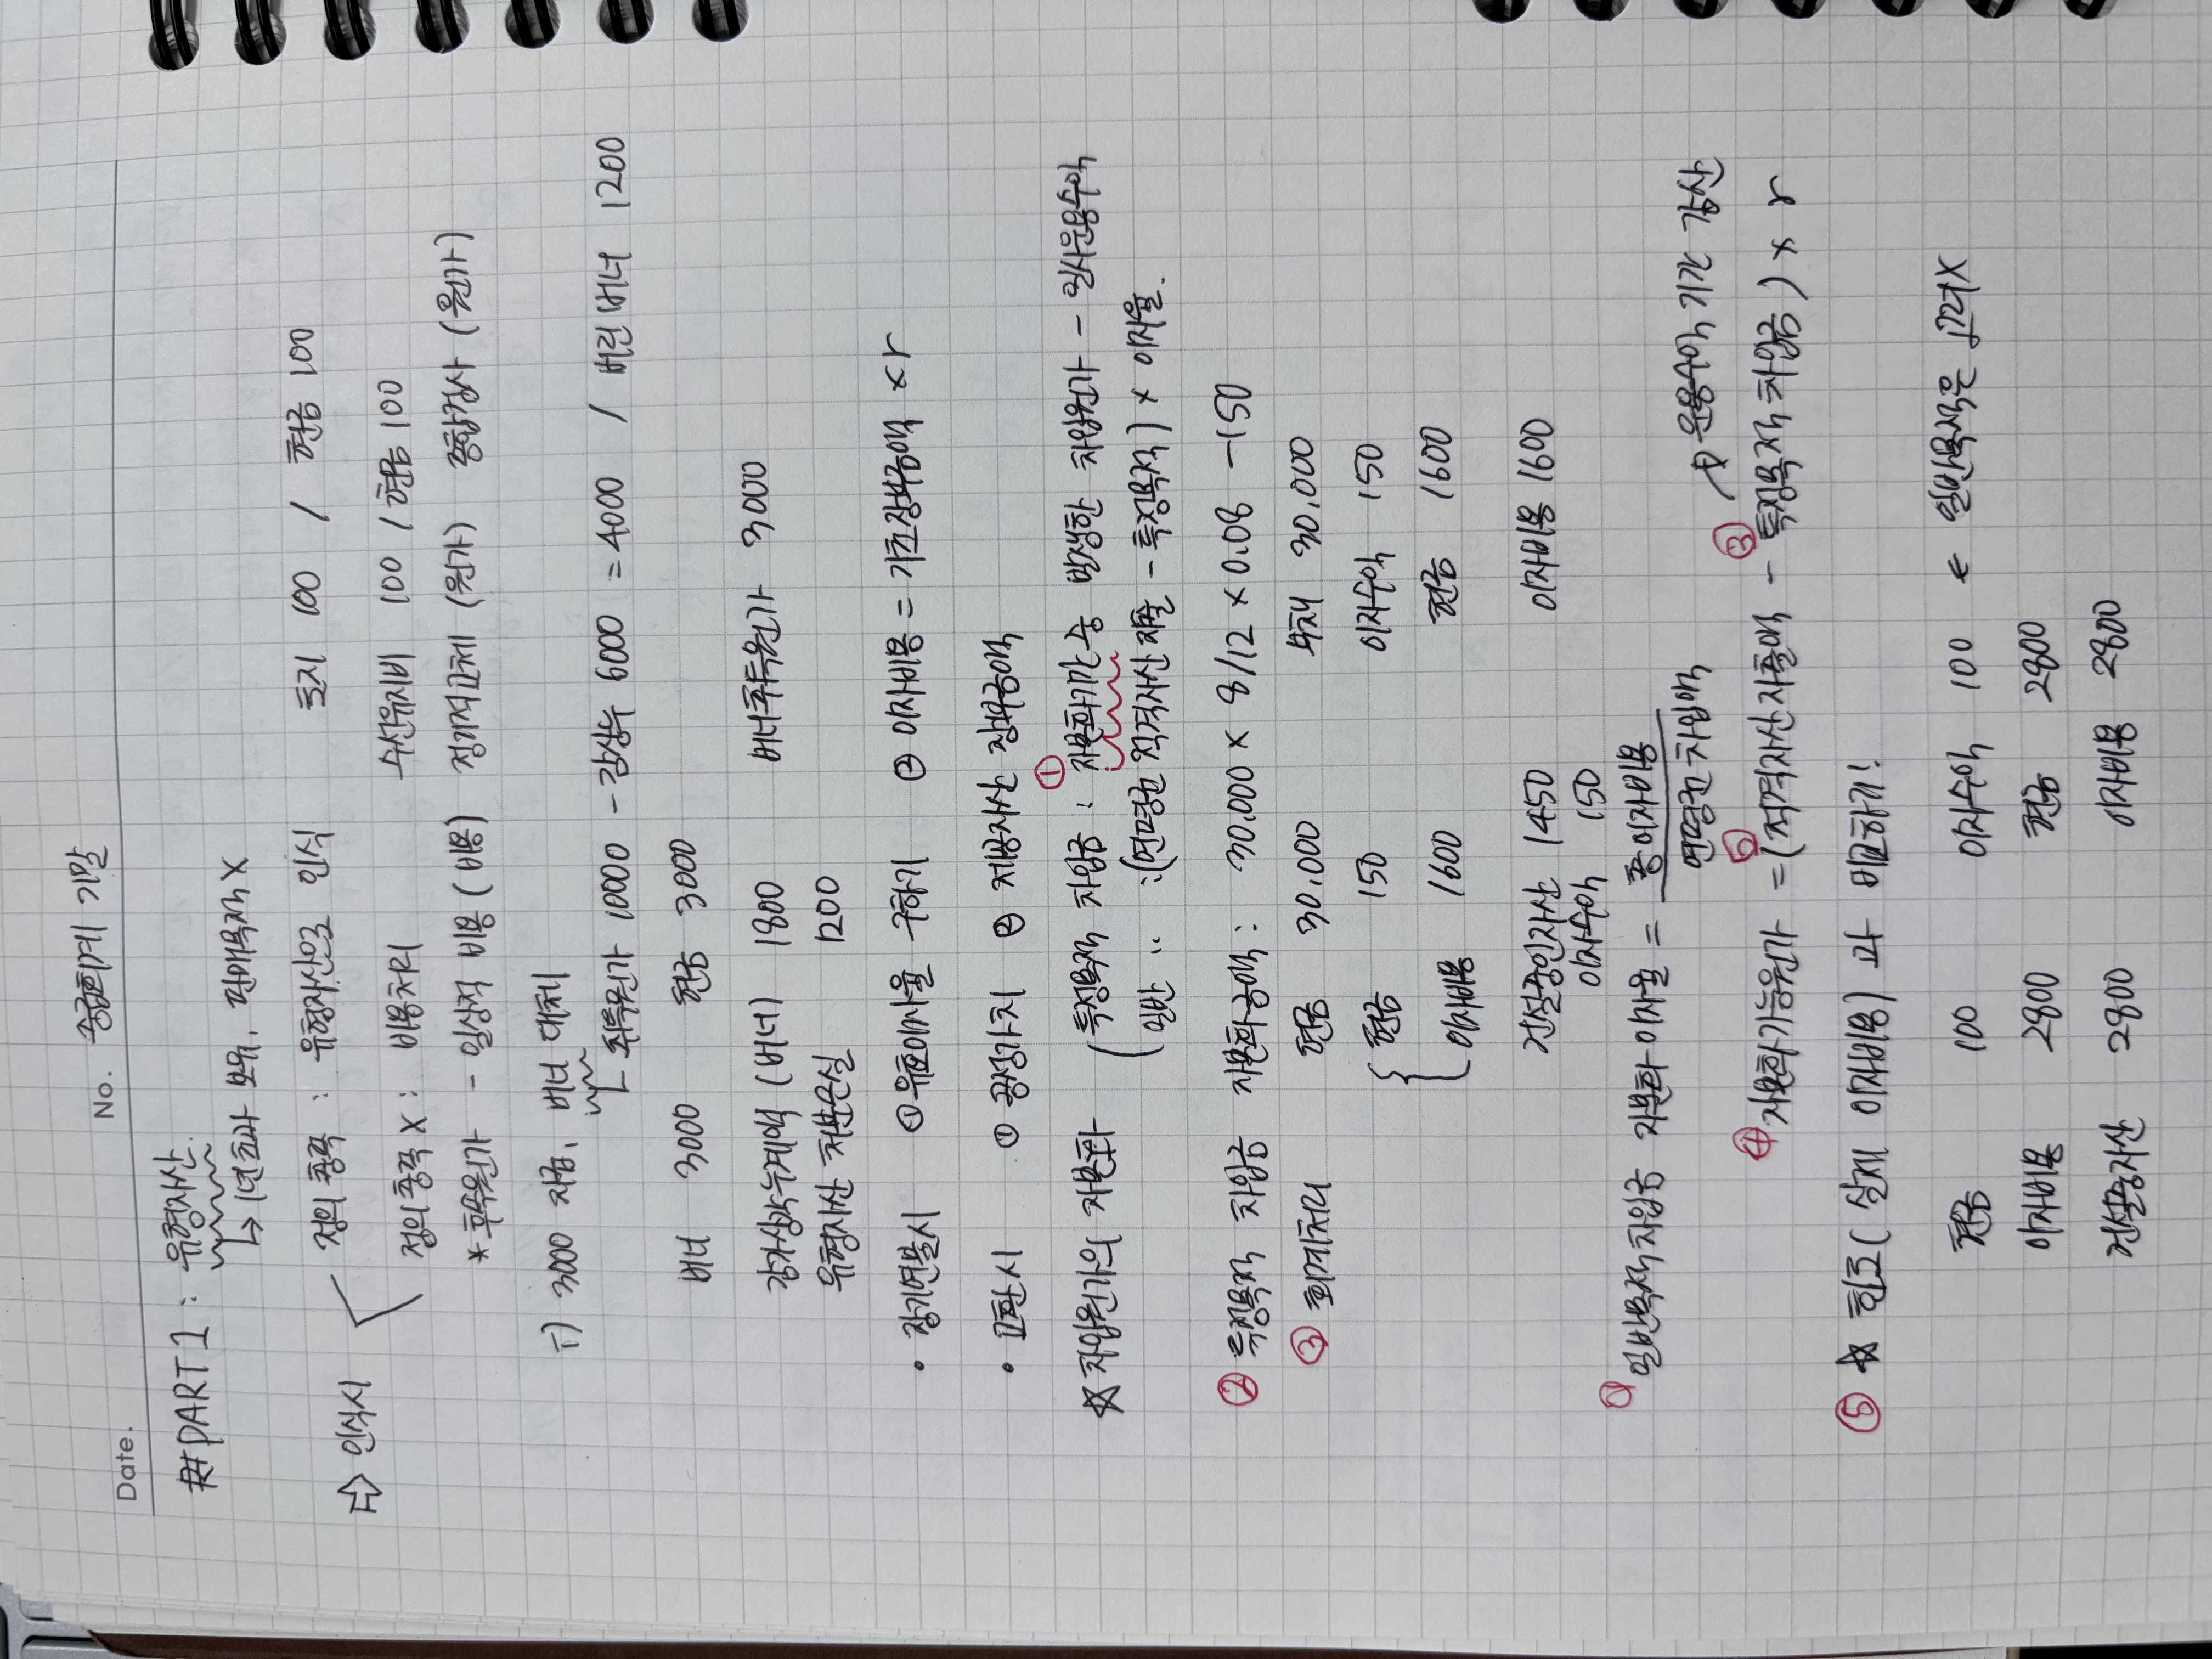 Date.
No. 중급회계 기말
#PART 1 : 유형자산.
↳ 1년초과 보유, 판매목적 X
⇨ 인식시
정의 충족 : 유형자산으로 인식 토지 100 / 현금 100
정의 충족 X : 비용처리 수선유지비 100 / 현금 100
* 후속원가 - 일상적 비용 (비용) 정기적교체 (원가) 종합검사 (원가)
i) 3000 지급, 버너 대체
취득원가 10000 - 감상누 6000 = 4000 / 버린 버너 1200
버너 3000 현금 3000
감가상각누계액 (버너) 1800 버너취득원가 3000
유형자산 처분손실 1200
• 장기연불시 ① 유효이자율 구하기 ② 이자비용 = 기초장부금액 × r
• 교환시 ① 공정가치 ② 제공자산 장부금액
☆ 차입원가의 자본화
특정목적 차입금 : ① 자본화기간 중 발생한 차입원가 - 일시운용수익
일반 〃 : (연평균 적격자산 지출 - 특정목적) × 이자율.
② 특정목적 차입금 자본화금액 : 30,000 × 8/12 × 0.08 - 150
③ 회계처리 현금 30,000 부채 30,000
현금 150 이자수익 150
이자비용 1600 현금 1600
건설중인자산 1450 이자비용 1600
이자수익 150
일반목적차입금 자본화 이자율 = 총이자비용
연평균 차입액
운용수익 기간 감산
④ 자본화가능원가 = (적격자산 지출액 - ③ 특정목적 차입금) × r
⑤ ☆ 한도 (실제 이자비용) 과 비교하기!
현금 100 이자수익 100 ← 일반목적은 고려X
이자비용 2800 현금 2800
건설중자산 2800 이자비용 2800